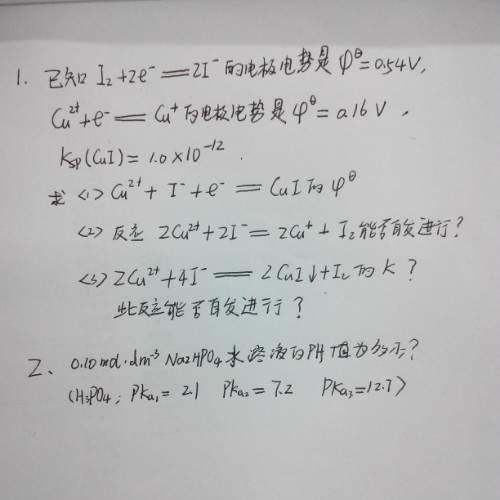 1. 已知 I₂+2e⁻══2I⁻的电极电势是 φ^θ=0.54V,
Cu²⁺+e⁻══Cu⁺的电极电势是φ^θ=0.16V,
Ksp(CuI)=1.0×10⁻¹².
求 <1> Cu²⁺+I⁻+e⁻══CuI的φ^θ
<2> 反应 2Cu²⁺+2I⁻═2Cu⁺+I₂能否自发进行?
<3> 2Cu²⁺+4I⁻══2CuI↓+I₂的K?
此反应能否自发进行?
2、0.10mol·dm⁻³Na₂HPO₄水溶液的PH值为多少?
(H₃PO₄; PKa₁=2.1 PKa₂=7.2 PKa₃=12.7)